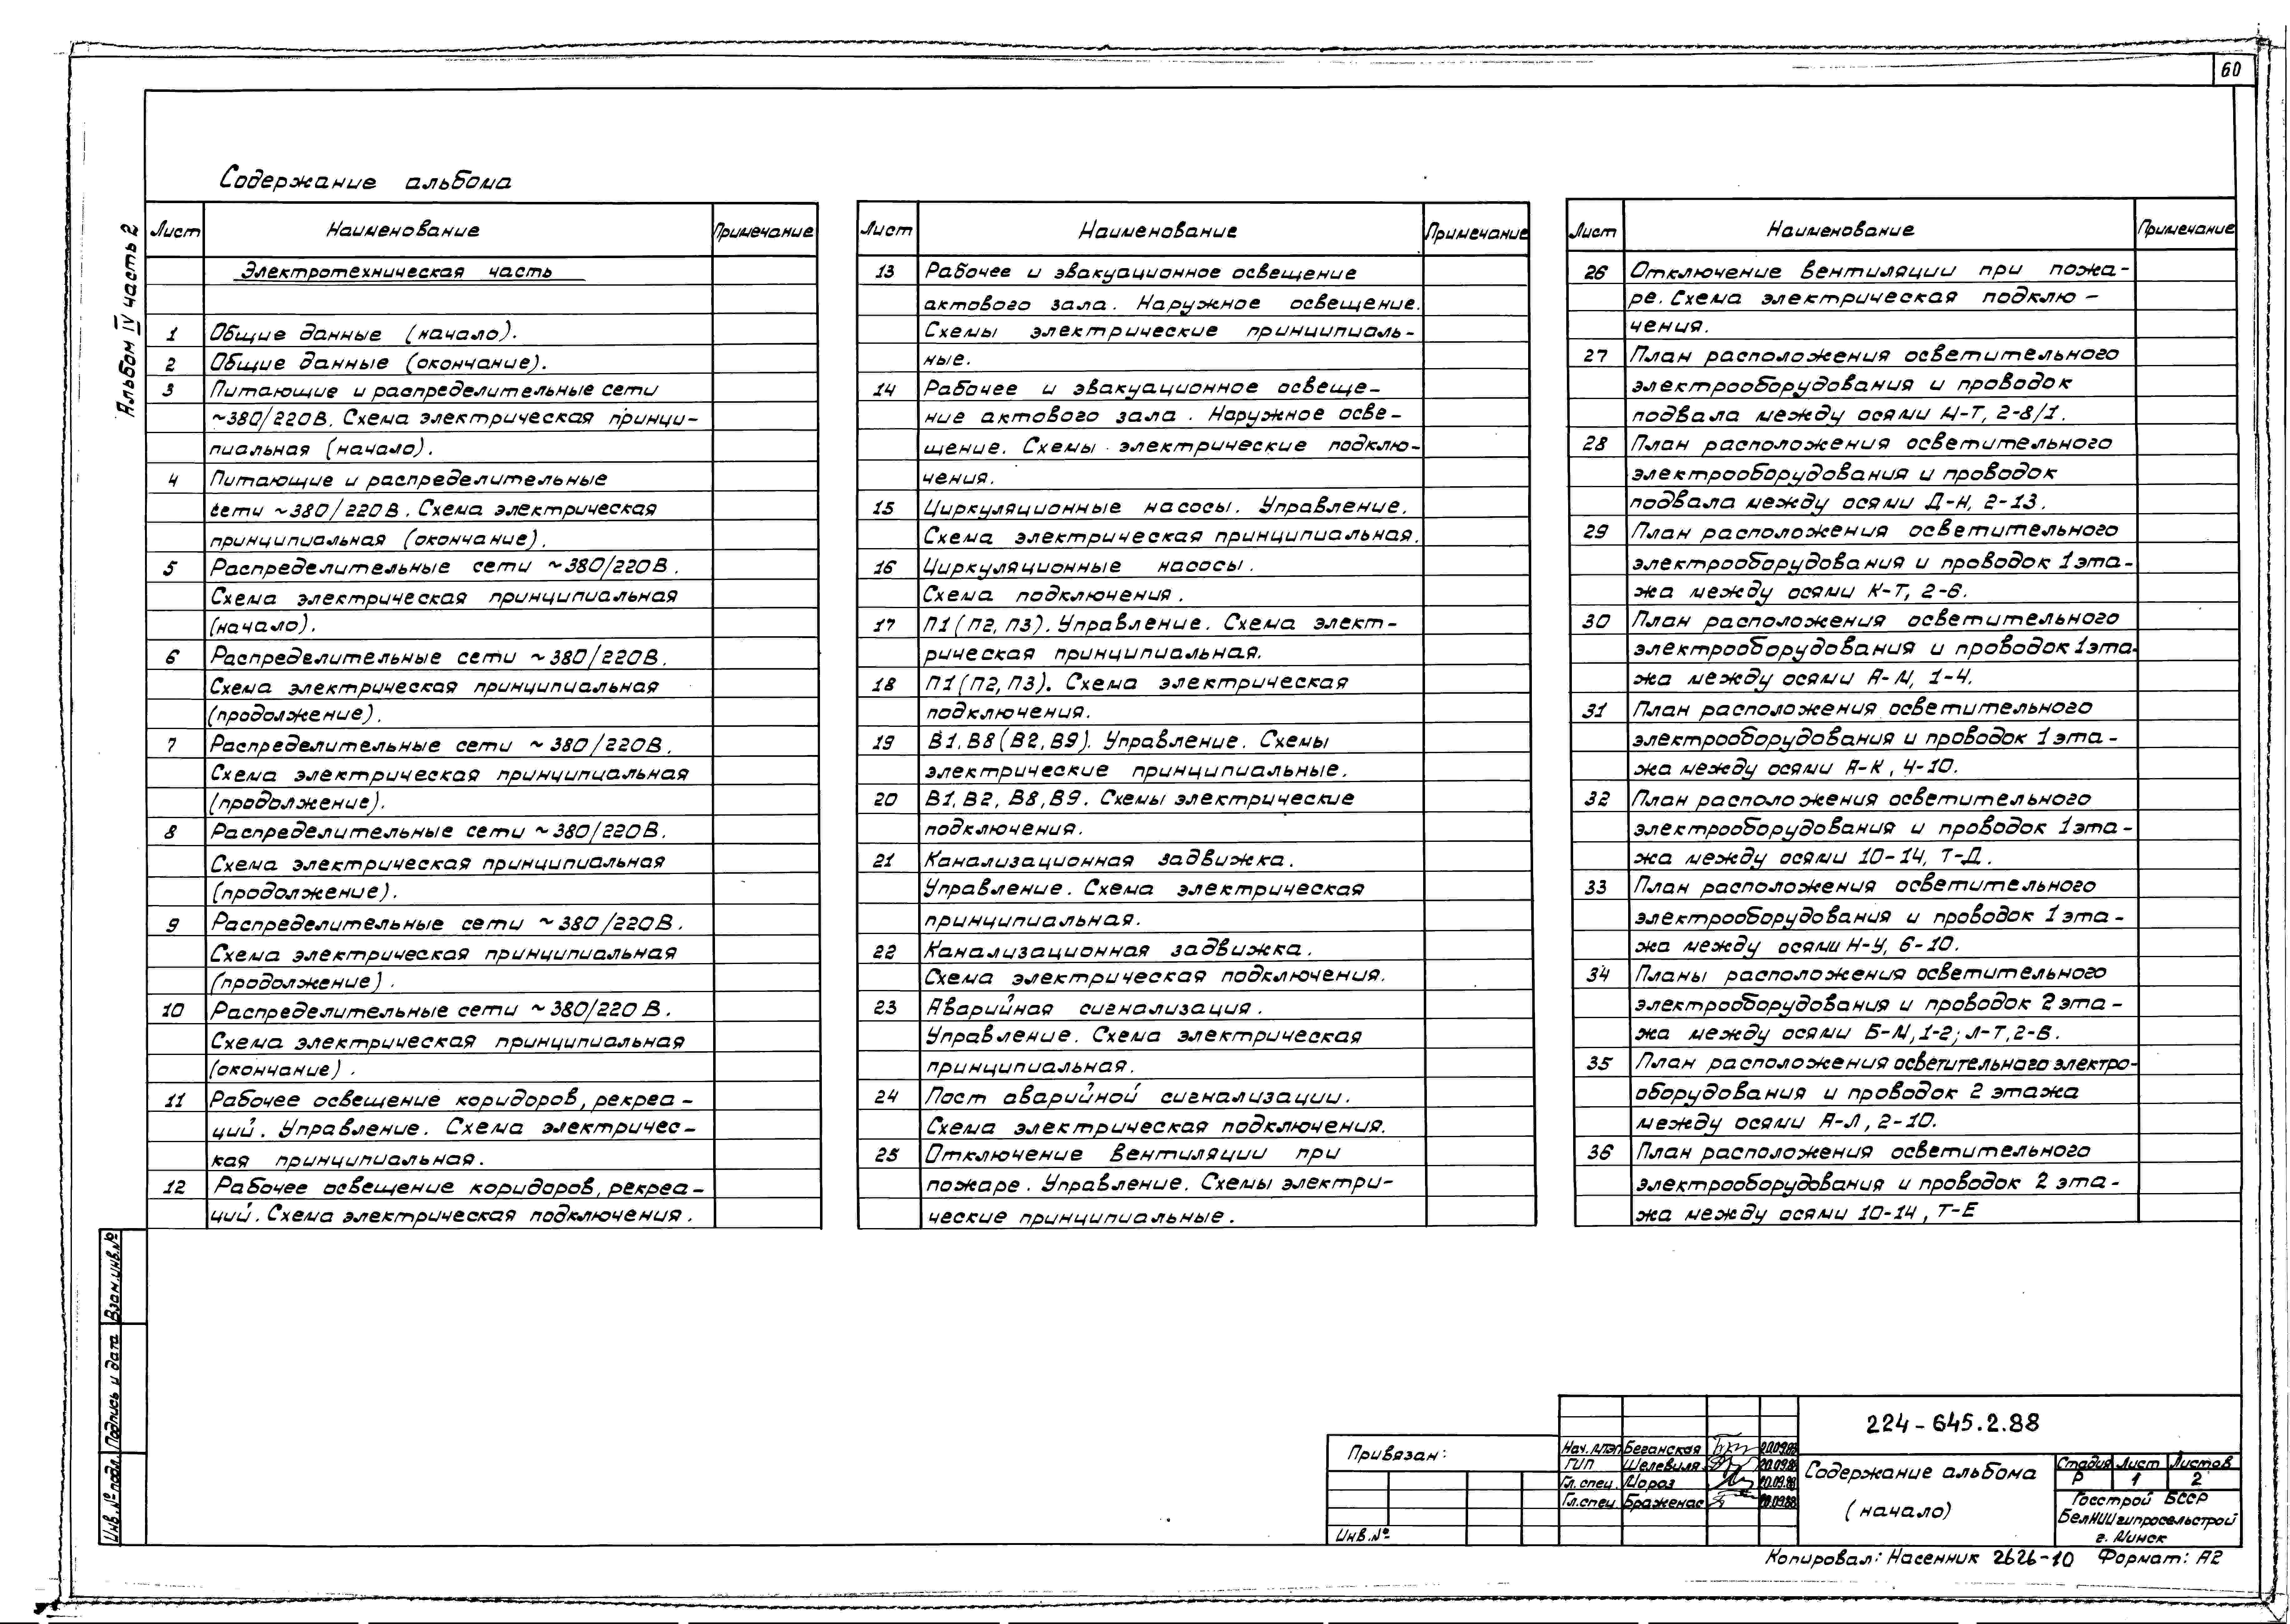 60
Альбом IV часть 2
Содержание альбома
Лист Наименование Примечание
Электротехническая часть
1 Общие данные (начало).
2 Общие данные (окончание).
3 Питающие и распределительные сети
~380/220В. Схема электрическая принци-
пиальная (начало).
4 Питающие и распределительные
сети ~380/220В. Схема электрическая
принципиальная (окончание).
5 Распределительные сети ~380/220В.
Схема электрическая принципиальная
(начало).
6 Распределительные сети ~380/220В.
Схема электрическая принципиальная
(продолжение).
7 Распределительные сети ~380/220В.
Схема электрическая принципиальная
(продолжение).
8 Распределительные сети ~380/220В.
Схема электрическая принципиальная
(продолжение).
9 Распределительные сети ~380/220В.
Схема электрическая принципиальная
(продолжение).
10 Распределительные сети ~380/220В.
Схема электрическая принципиальная
(окончание).
11 Рабочее освещение коридоров, рекреа-
ций. Управление. Схема электричес-
кая принципиальная.
12 Рабочее освещение коридоров, рекреа-
ций. Схема электрическая подключения.
Лист Наименование Примечание
13 Рабочее и эвакуационное освещение
актового зала. Наружное освещение.
Схемы электрические принципиаль-
ные.
14 Рабочее и эвакуационное освеще-
ние актового зала. Наружное осве-
щение. Схемы электрические подклю-
чения.
15 Циркуляционные насосы. Управление.
Схема электрическая принципиальная.
16 Циркуляционные насосы.
Схема подключения.
17 П1(П2,П3). Управление. Схема элект-
рическая принципиальная.
18 П1(П2,П3). Схема электрическая
подключения.
19 В1,В8(В2,В9). Управление. Схемы
электрические принципиальные.
20 В1,В2,В8,В9. Схемы электрические
подключения.
21 Канализационная задвижка.
Управление. Схема электрическая
принципиальная.
22 Канализационная задвижка.
Схема электрическая подключения.
23 Аварийная сигнализация.
Управление. Схема электрическая
принципиальная.
24 Пост аварийной сигнализации.
Схема электрическая подключения.
25 Отключение вентиляции при
пожаре. Управление. Схемы электри-
ческие принципиальные.
Лист Наименование Примечание
26 Отключение вентиляции при пожа-
ре. Схема электрическая подклю-
чения.
27 План расположения осветительного
электрооборудования и проводок
подвала между осями М-Т, 2-8/1.
28 План расположения осветительного
электрооборудования и проводок
подвала между осями Д-Н, 2-13.
29 План расположения осветительного
электрооборудования и проводок 1 эта-
жа между осями К-Т, 2-6.
30 План расположения осветительного
электрооборудования и проводок 1 эта-
жа между осями А-М, 1-4.
31 План расположения осветительного
электрооборудования и проводок 1 эта-
жа между осями А-К, 4-10.
32 План расположения осветительного
электрооборудования и проводок 1 эта-
жа между осями 10-14, Т-Д.
33 План расположения осветительного
электрооборудования и проводок 1 эта-
жа между осями Н-У, 6-10.
34 Планы расположения осветительного
электрооборудования и проводок 2 эта-
жа между осями Б-М,1-2; Л-Т,2-В.
35 План расположения осветительного электро-
оборудования и проводок 2 этажа
между осями А-Л, 2-10.
36 План расположения осветительного
электрооборудования и проводок 2 эта-
жа между осями 10-14, Т-Е
Взам.инв.№
Подпись и дата
Инв.№подл.
Привязан:
Инв.№
Нач. Беганская 20.09.88
ГИП Шелевиля 20.09.88
Гл.спец. Мороз 20.09.88
Гл.спец. Браженас 20.09.88
224-645.2.88
Содержание альбома
(начало)
Стадия Лист Листов
Р 1 2
Госстрой БССР
БелНИИгипросельстрой
г. Минск
Копировал: Насенник 2626-10 Формат: А2